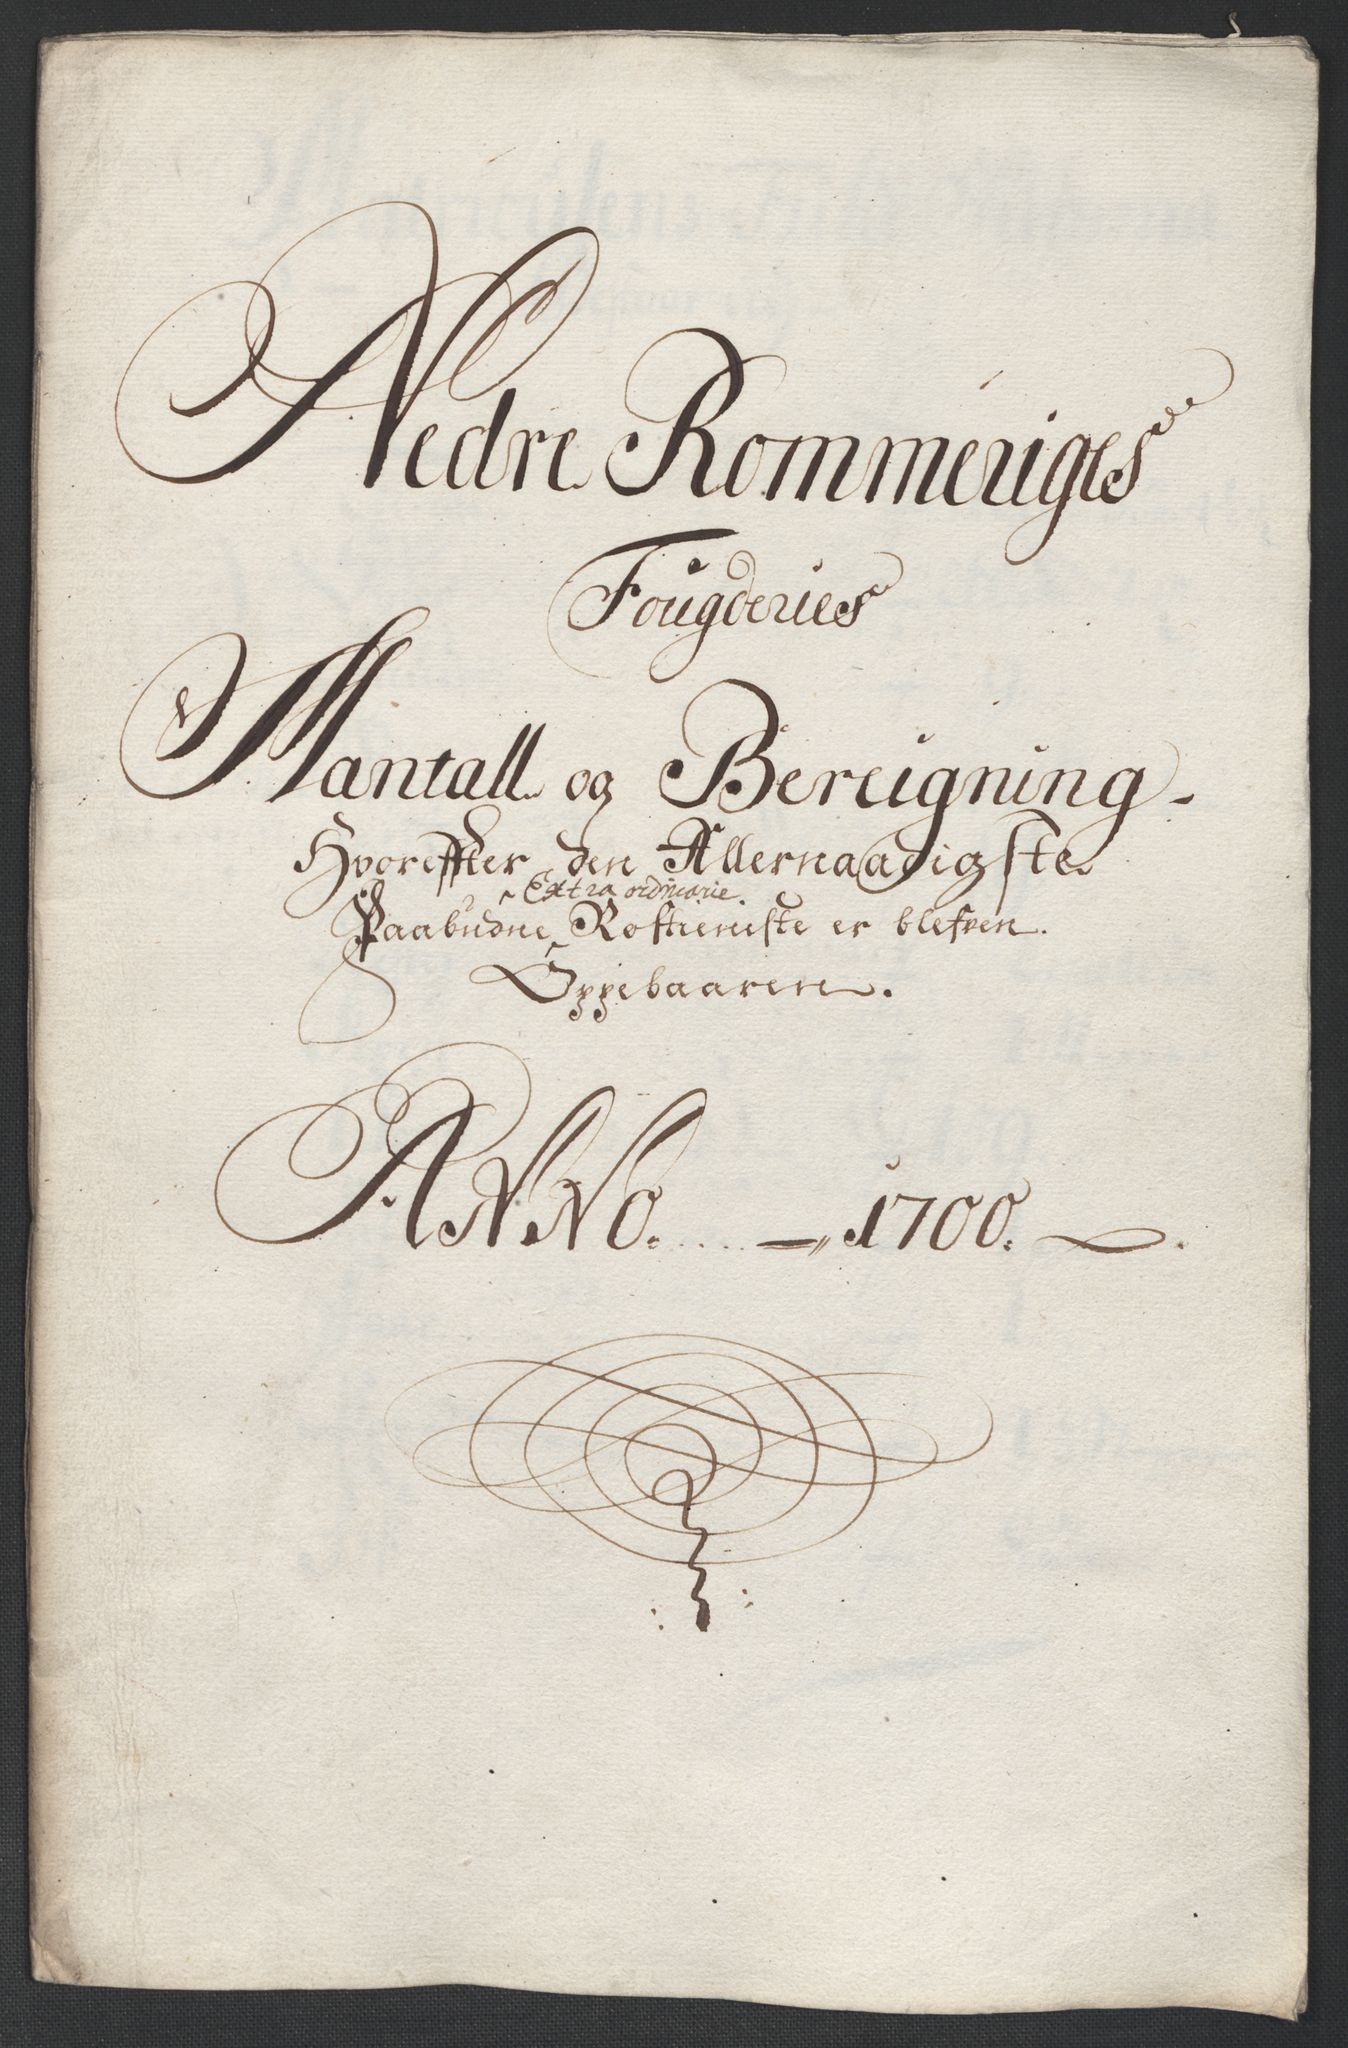 Nedre Rommeriges
Fougderies
Mantall og Bereigning
Hvorefter den Allernaadigste
Extra ordinarie
Paabudne Rostieniste er blefven
Oppebaaren.
ANNO. .... 1700.